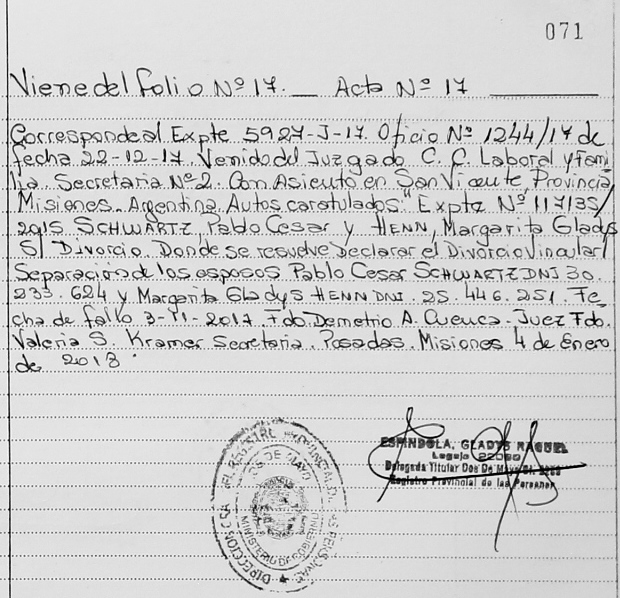 071
Viene del folio Nº 17. Acta Nº 17
Corresponde al Expte 5927-J-17. Oficio Nº 1244/17 de
fecha 22-12-17. Venido del Juzgado C. C. Laboral y Fami
lia. Secretaria Nº 2. Con Asiento en San Vicente, Provincia
Misiones. Argentina. Autos caratulados "Expte Nº 117135/
2015 SCHWARTZ Pablo Cesar y HENN, Margarita Gladys
S/ Divorcio. Donde se resuelve Declarar el Divorcio vincular/
Separación de los esposos Pablo Cesar SCHWARTZ DNI 30.
233.624 y Margarita Gladys HENN DNI. 25.446.251. Fe
cha de fallo 3-11-2017. Fdo. Demetrio A. Cuenca. Juez Fdo.
Valeria S. Kramer Secretaria. Posadas. Misiones 4 de Enero
de 2018.
ESPINDOLA, GLADYS RAQUEL
Legajo
Delegada Titular Dos De Mayo
Registro Provincial de las Personas
DIRECCION GRAL DEL REGISTRO PROVINCIAL DE LAS PERSONAS
DOS DE MAYO
MINISTERIO DE GOBIERNO